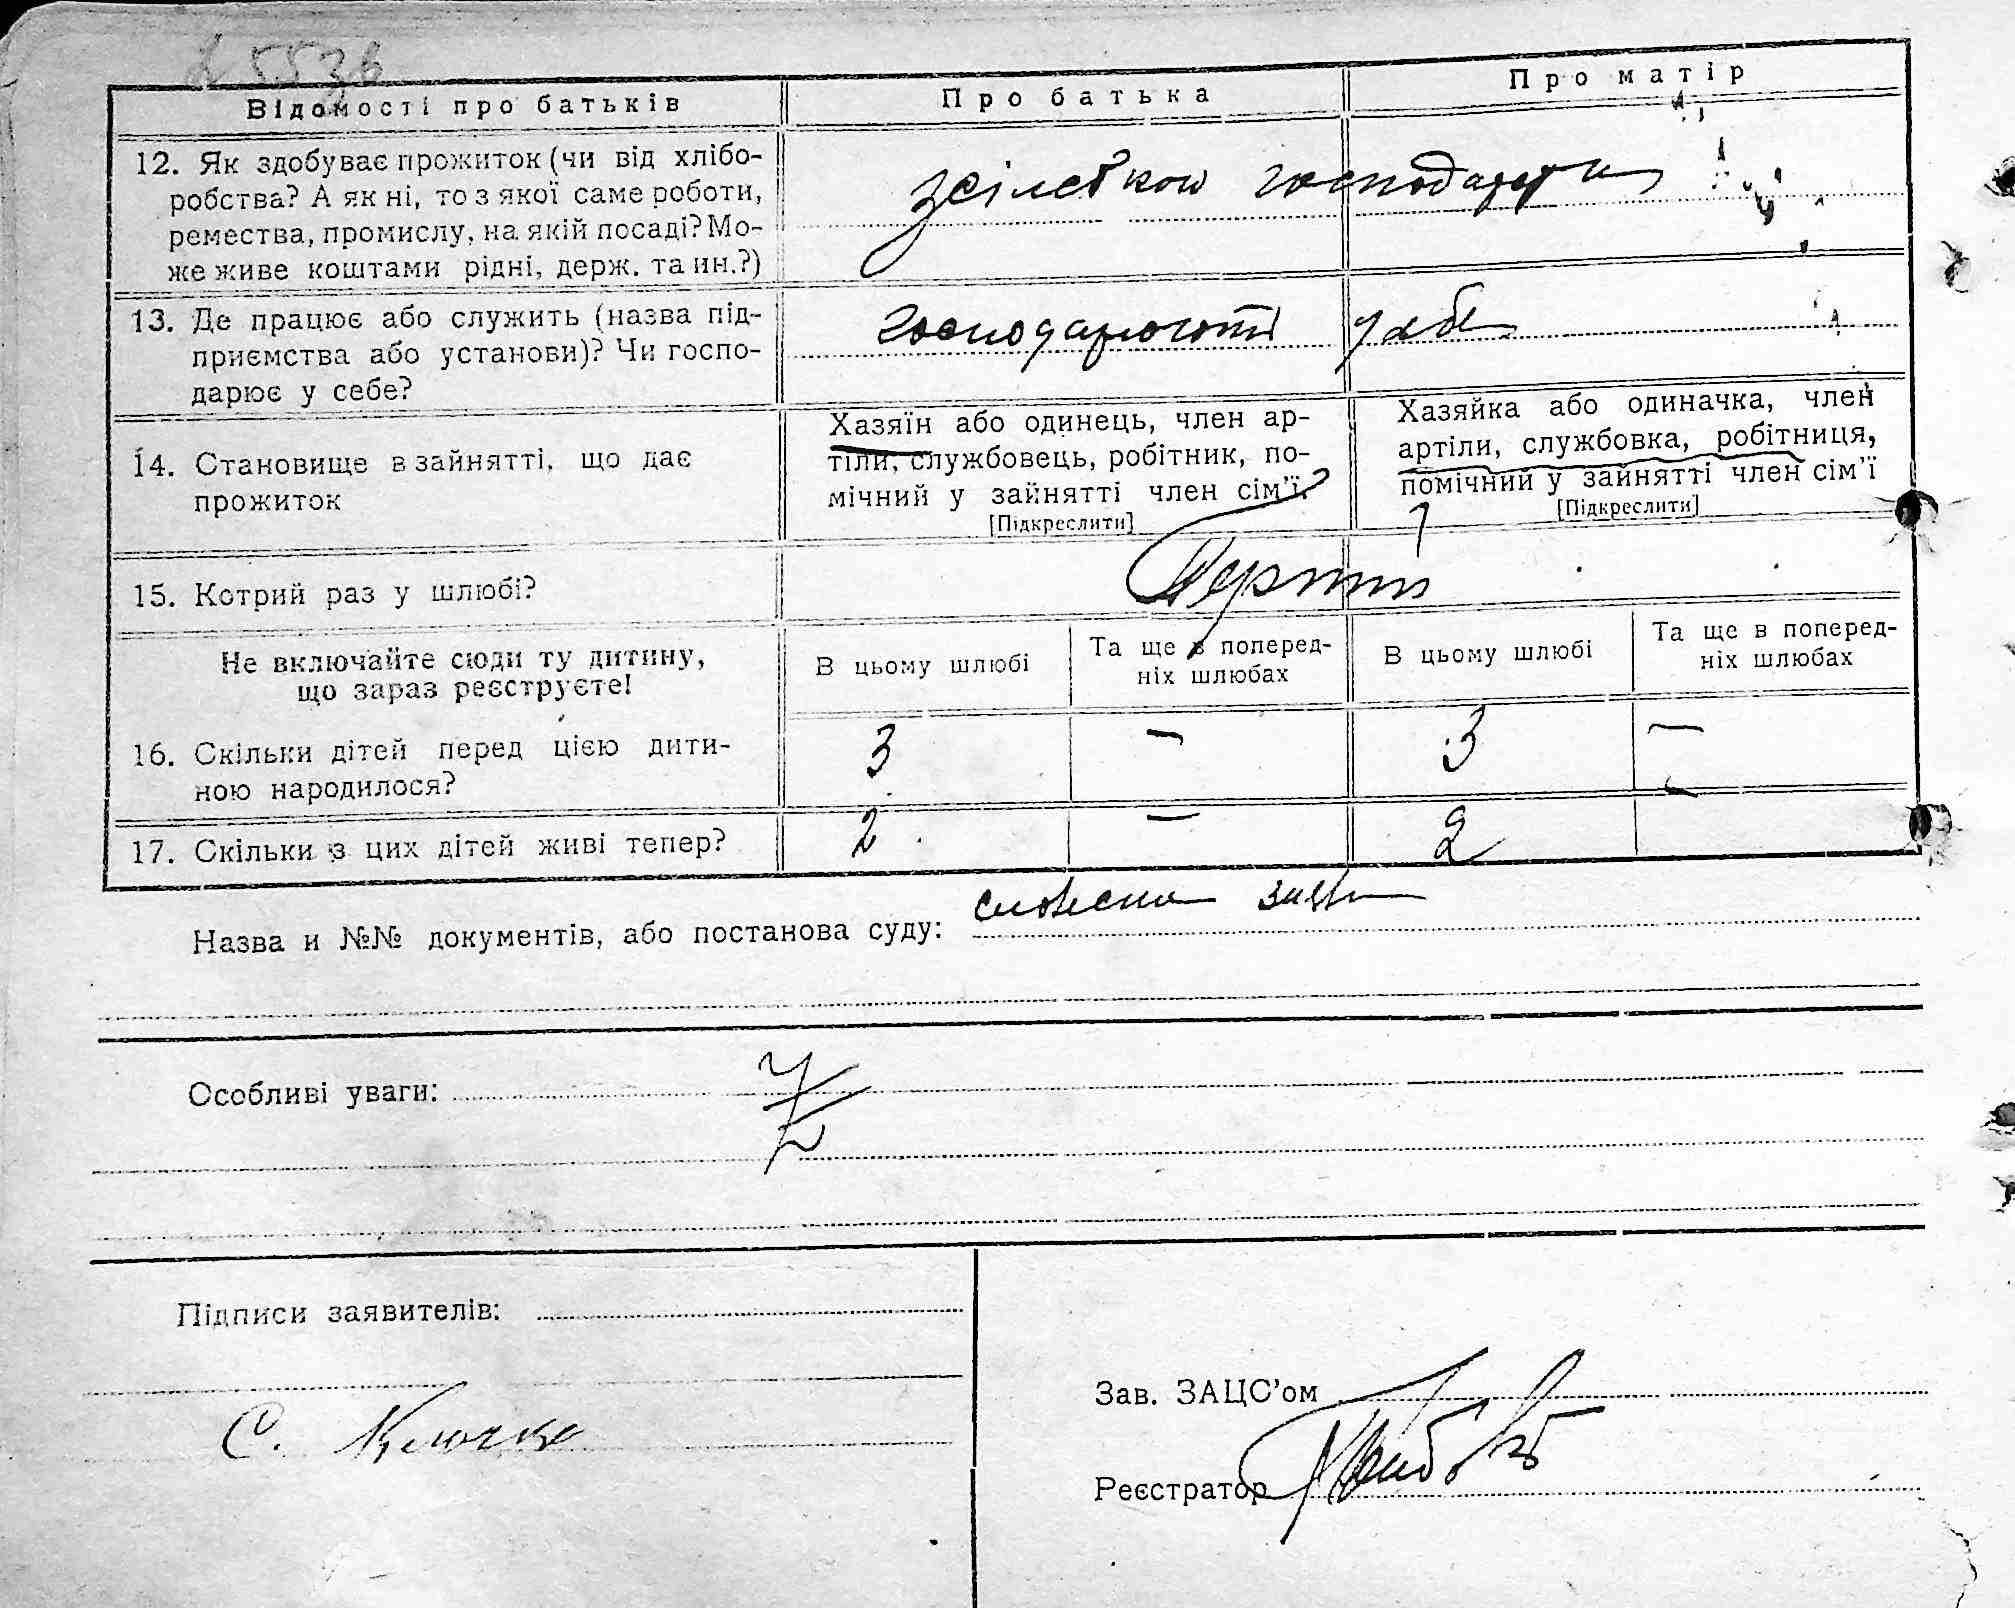 Відомості про батьків
Про батька
Про матір
12. Як здобуває прожиток (чи від хлібо-
робства? А як ні, то з якої саме роботи,
ремества, промислу, на якій посаді? Мо-
же живе коштами рідні, держ. та ин.?)
господарки
13. Де працює або служить (назва під-
приємства або установи)? Чи госпо-
дарює у себе?
господарюють у себе
14. Становище в зайнятті, що дає
прожиток
Хазяїн або одинець, член ар-
тіли, службовець, робітник, по-
мічний у зайнятті член сім'ї.
[Підкреслити]
Хазяйка або одиначка, член
артіли, службовка, робітниця,
помічний у зайнятті член сім'ї
[Підкреслити]
15. Котрий раз у шлюбі?
Перший
Не включайте сюди ту дитину,
що зараз реєструєте!
В цьому шлюбі
Та ще в поперед-
ніх шлюбах
В цьому шлюбі
Та ще в поперед-
ніх шлюбах
16. Скільки дітей перед цією дити-
ною народилося?
3 — 3 —
17. Скільки з цих дітей живі тепер?
2 — 2
Назва и №№ документів, або постанова суду: словесна заява
Особливі уваги:
Підписи заявителів:
С. Клочко
Зав. ЗАЦС'ом
Реєстратор